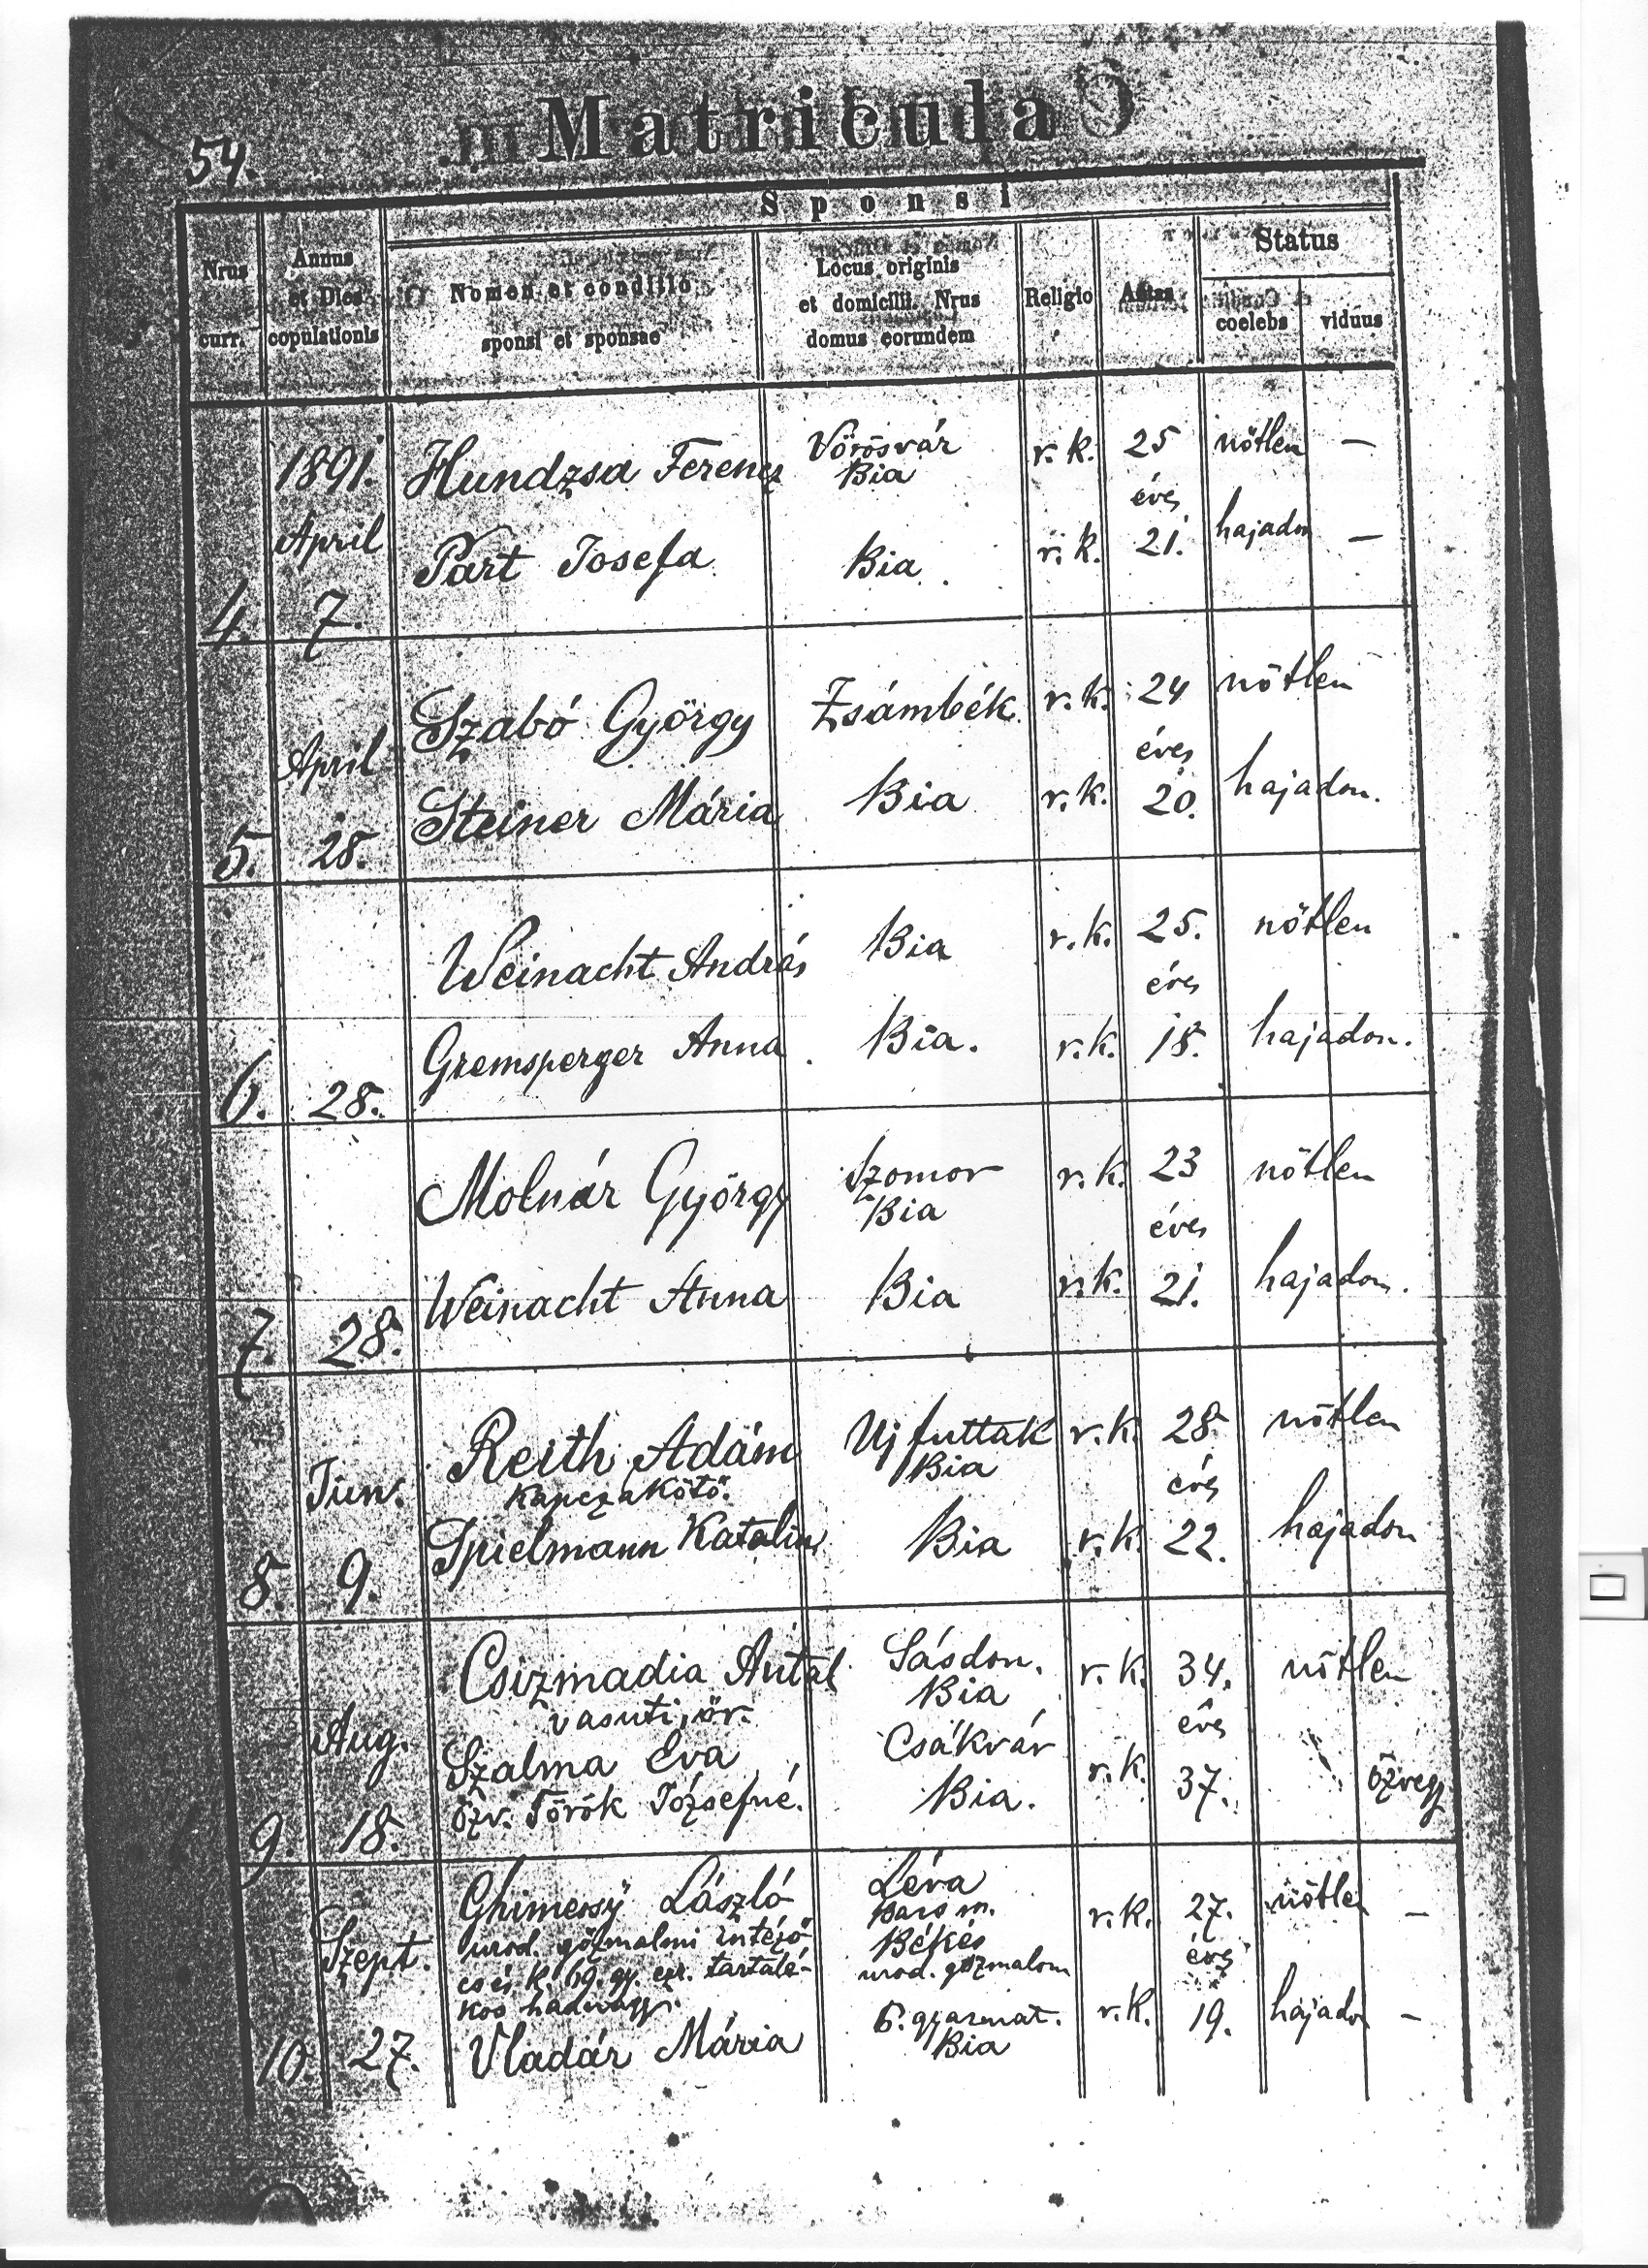 54.
Matricula
Sponsi
Nrus
curr.
Annus
et Dies
copulationis
Nomen et conditio
sponsi et sponsae
Locus originis
et domicilii. Nrus
domus eorundem
Religio
Aetas
Status
coelebs
viduus
4.
1891.
April
7.
Hundzsa Ferencz
Vörösvár
Bia
r. k.
25
éves
nőtlen
—
Part Josefa
Bia
r. k.
21.
hajadon
—
5.
April
28.
Szabó György
Zsámbék
r. k.
24
éves
nőtlen
Steiner Mária
Bia
r. k.
20.
hajadon.
6.
28.
Weinacht András
Bia
r. k.
25.
éves
nőtlen
Gremsperger Anna
Bia.
r. k.
18.
hajadon.
7.
28.
Molnár György
Szomor
Bia
r. k.
23
éves
nőtlen
Weinacht Anna
Bia
r. k.
21.
hajadon.
8.
Jun.
9.
Reith Adám
kapczakötő.
Uj futtak
Bia
r. k.
28.
éves
nőtlen
Spielmann Katalin
Bia
r. k.
22.
hajadon
9.
Aug.
18.
Csizmadia Antal
vasuti őr.
Sásdon.
Bia
r. k.
34.
éves
nőtlen
Szalma Eva
özv. Török Józsefné.
Csákvár
Bia.
r. k.
37.
özvegy
10.
Szept.
27.
Ghimessÿ László
urod. gőzmalmi intéző
cs és k. 69. gy. ezr. tartalé-
kos hadnagy.
Léva
Bars m.
Békés
urod. gőzmalom
r. k.
27.
éves
nőtlen
—
Vladár Mária
B. gyarmat.
Bia
r. k.
19.
hajadon
—